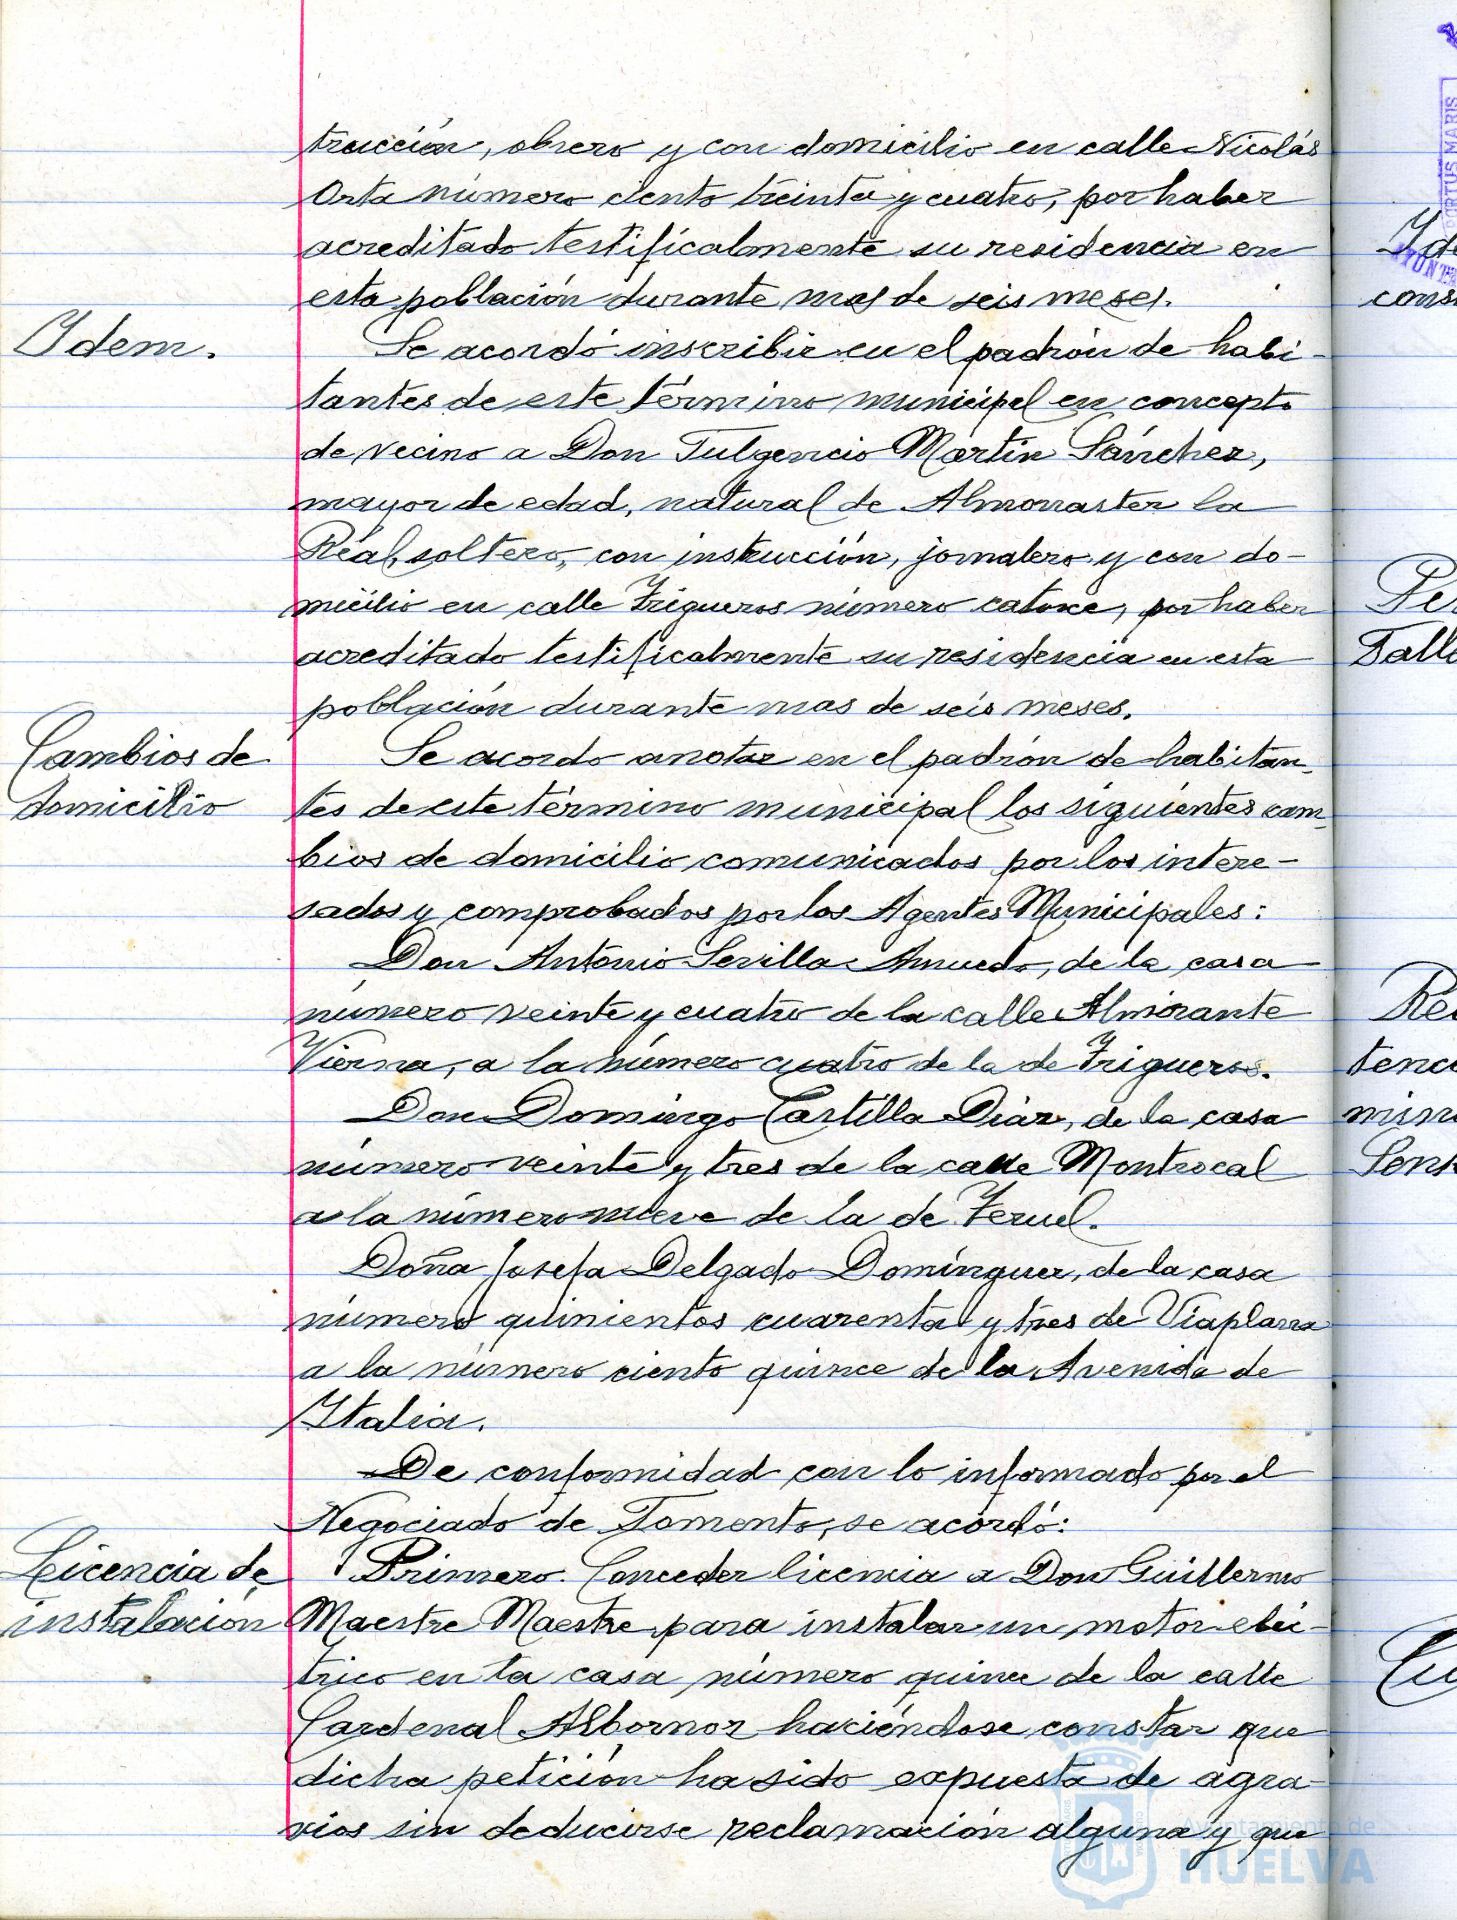 trucción, obrero y con domicilio en calle Nicolás
Orta número ciento treinta y cuatro, por haber
acreditado testificalmente su residencia en
esta población durante mas de seis meses.
Idem.
Se acordó inscribir en el padrón de habi-
tantes de este término municipal en concepto
de vecino a Don Fulgencio Martín Sánchez,
mayor de edad, natural de Almonaster la
Real, soltero, con instrucción, jornalero y con do-
micilio en calle Trigueros número catorce, por haber
acreditado testificalmente su residencia en esta
población durante mas de seis meses.
Cambios de
domicilio
Se acordo anotar en el padrón de habitan-
tes de este término municipal los siguientes cam-
bios de domicilio comunicados por los intere-
sados y comprobados por los Agentes Municipales:
Don Antonio Sevilla Amuedo, de la casa
número veinte y cuatro de la calle Almirante
Vierna, a la número cuatro de la de Trigueros.
Don Domingo Castilla Diaz, de la casa
número veinte y tres de la calle Montrocal
a la número nueve de la de Teruel.
Doña Josefa Delgado Domínguez, de la casa
número quinientos cuarenta y tres de Viaplana
a la número ciento quince de la Avenida de
Italia.
De conformidad con lo informado por el
Negociado de Fomento, se acordó:
Licencia de
instalación
Primero. Conceder licencia a Don Guillermo
Maestre Maestre para instalar un motor eléc-
trico en la casa número quince de la calle
Cardenal Albornoz haciéndose constar que
dicha petición ha sido expuesta de agra-
vios sin deducirse reclamación alguna y que
Ayuntamiento de
HUELVA
PORTUS MARIS